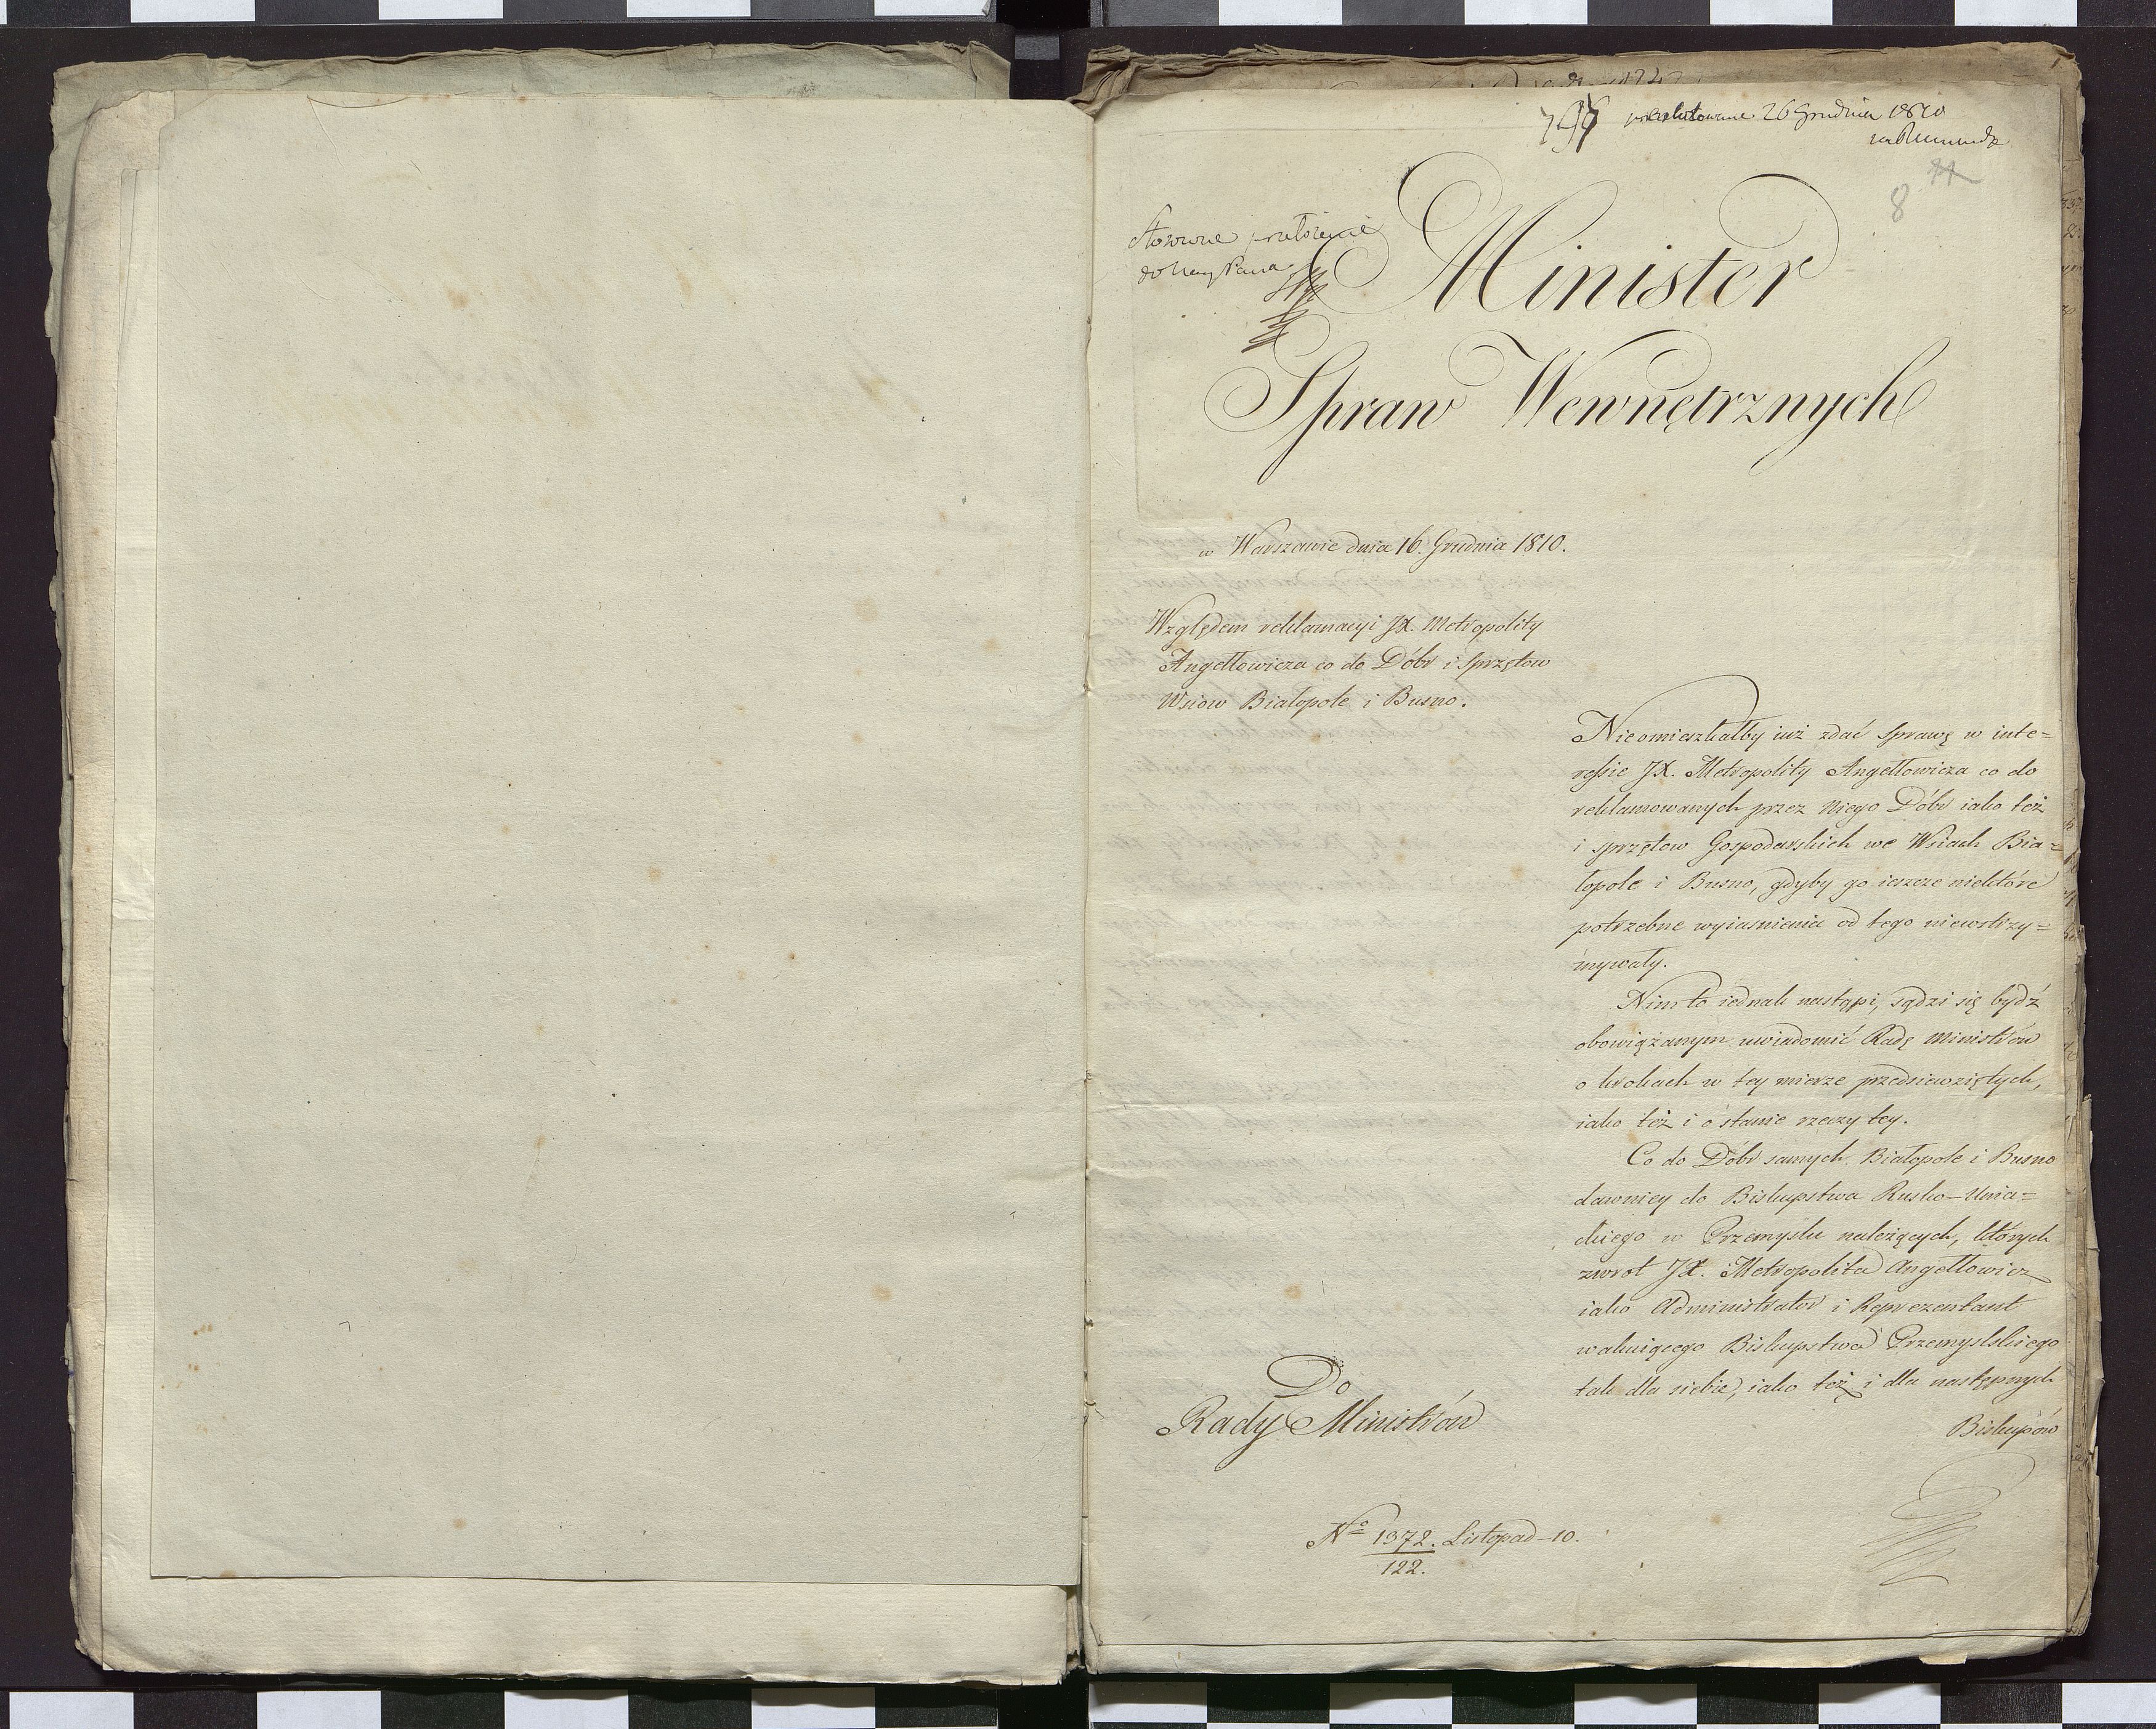 26 Grudnia 1810
8
Stosowne przełożenie
do Nay. Pana
Minister
Spraw Wewnętrznych
w Warszawie dnia 16. Grudnia 1810.
Względem reklamacyi JX. Metropolity
Angełłowicza co do Dóbr i Sprzętow
Wsiow Białopole i Busno.
Nieomieszkałby iuż zdać Sprawę w inte=
ressie JX. Metropolity Angełłowicza co do
reklamowanych przez Niego Dóbr iako też
i sprzętow Gospodarskich we Wsiach Bia=
łopole i Busno, gdyby go ieszcze niektóre
potrzebne wyiasnienia od tego niewstrzy=
mywały.
Nim to iednak nastąpi, sądzi się bydź
obowiązanym uwiadomić Radę Ministrów
o krokach w tey mierze przedsiewziętych,
iako też i o stanie rzeczy tey.
Co do Dóbr samych Białopole i Busno
dawniey do Biskupstwa Rusko-Unia=
ckiego w Przemyslu należących, których
zwrot JX. Metropolita Angełłowicz
iako Administrator i Reprezentant
wakuiącego Biskupstwa Przemyslskiego
tak dla siebie, iako też i dla następnych
Biskupów
Do
Rady Ministrów
No 1372. Listopad-10.
122.